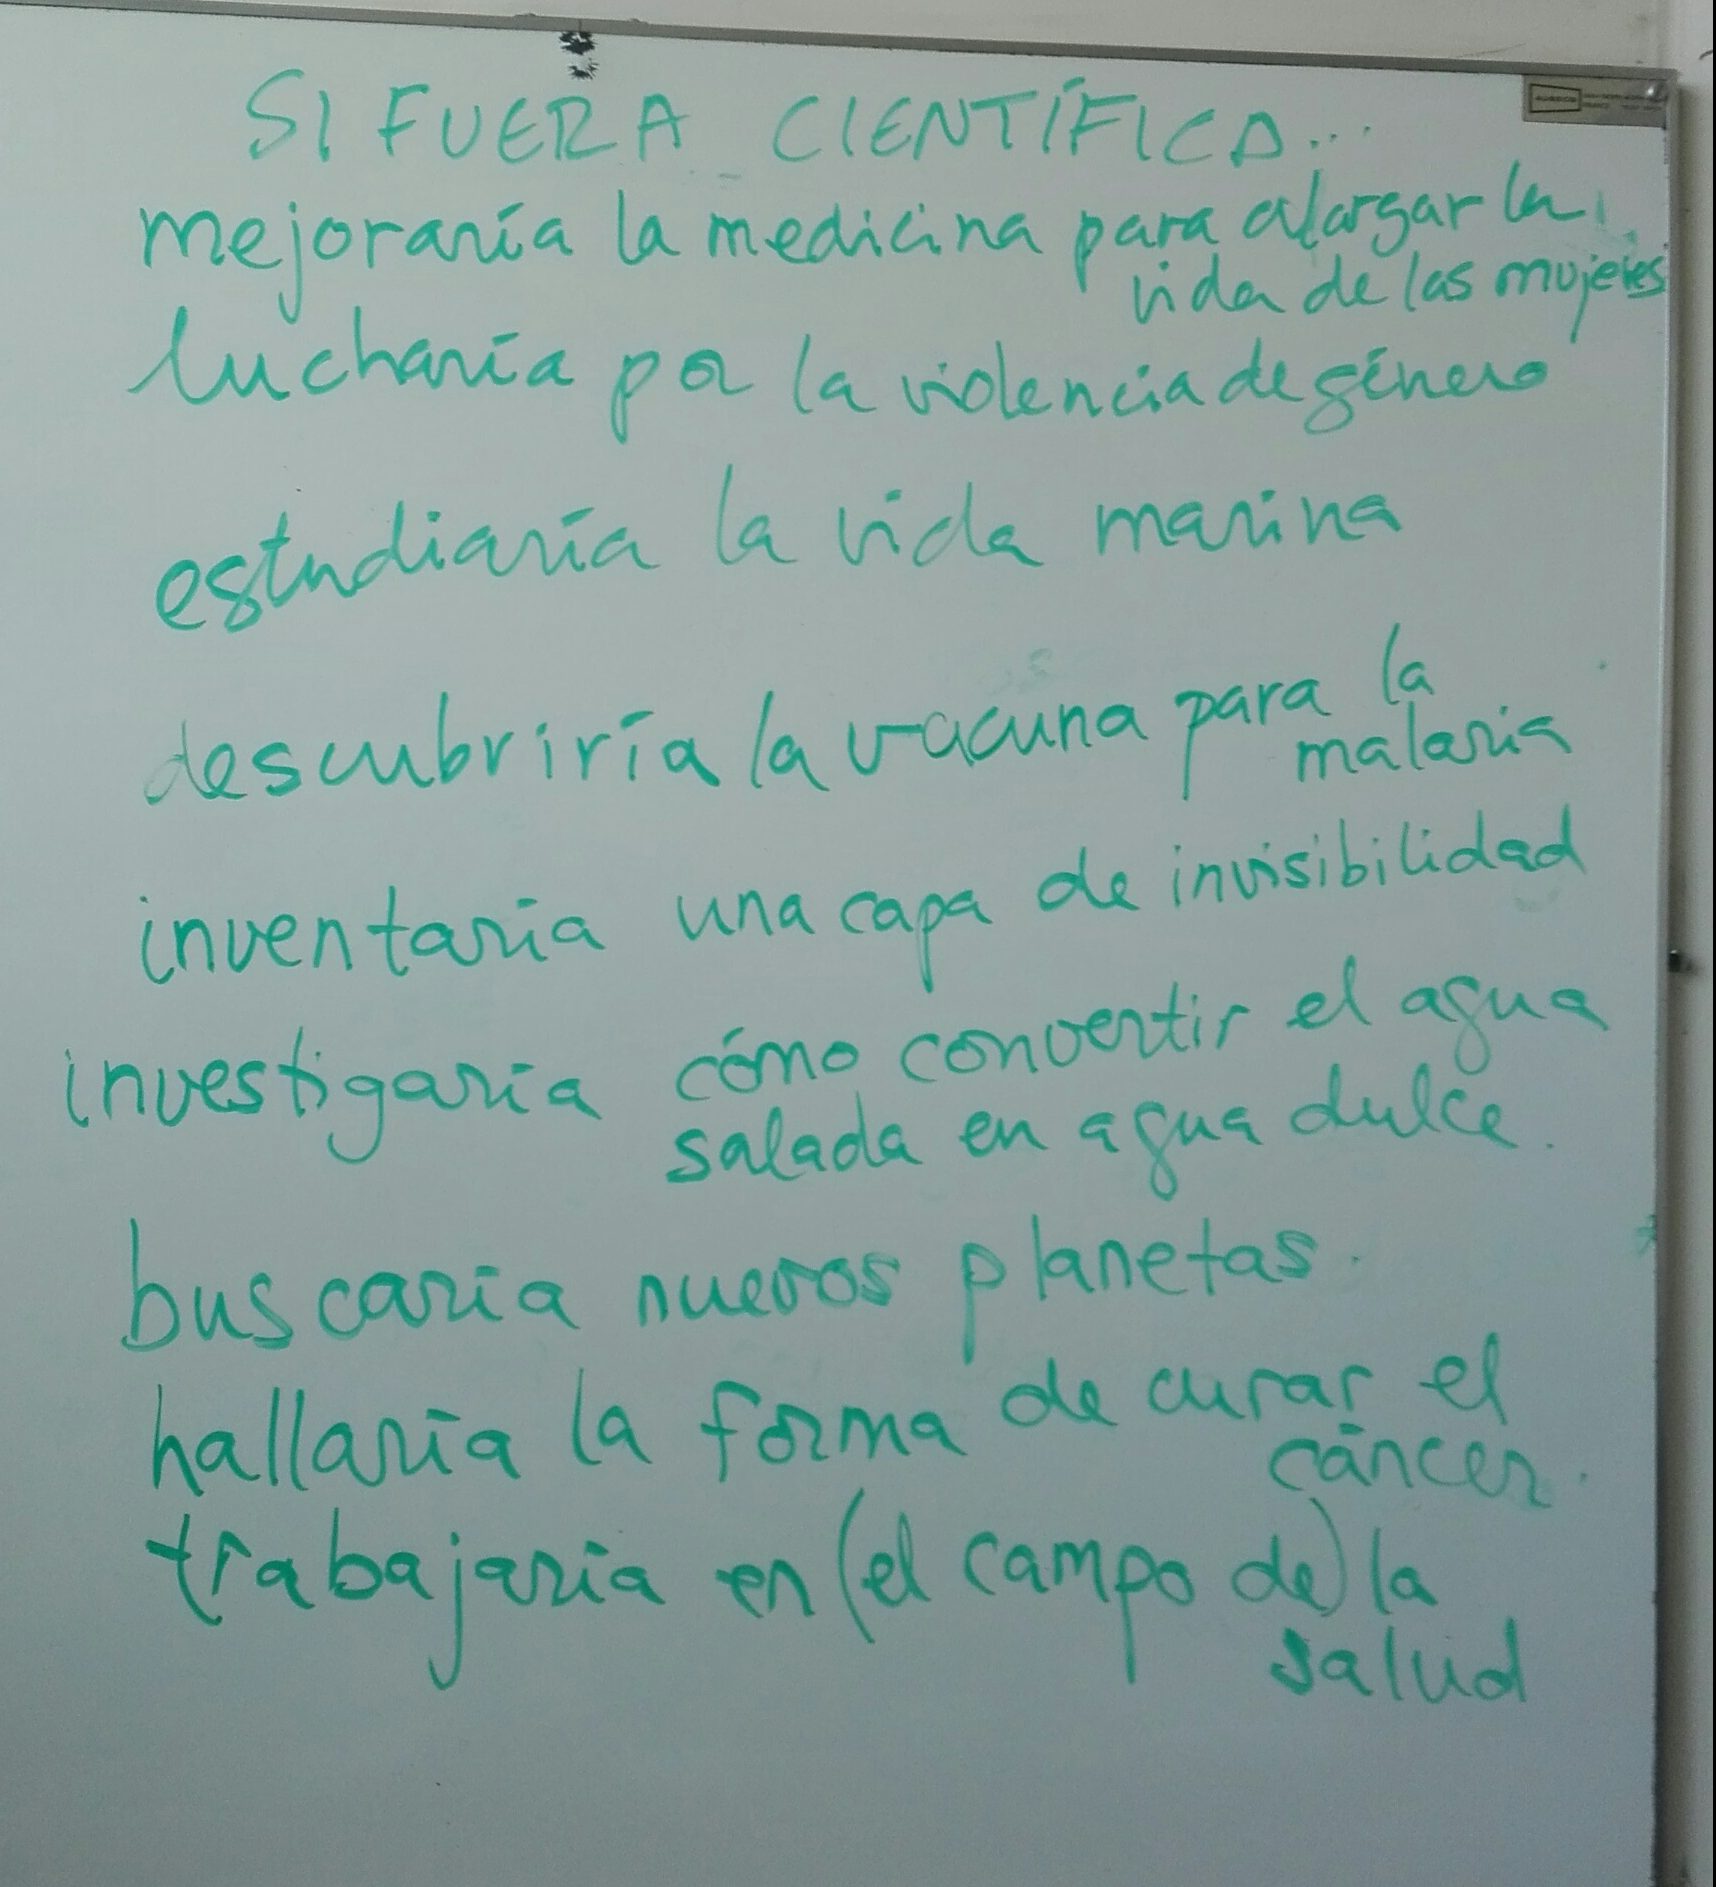 SI FUERA CIENTÍFICA...
mejoraría la medicina para alargar la
vida de las mujeres
lucharía por la violencia de género
estudiaría la vida marina
descubriría la vacuna para la
malaria
inventaría una capa de invisibilidad
investigaría cómo convertir el agua
salada en agua dulce.
buscaría nuevos planetas.
hallaría la forma de curar el
cáncer.
trabajaría en (el campo de) la
salud